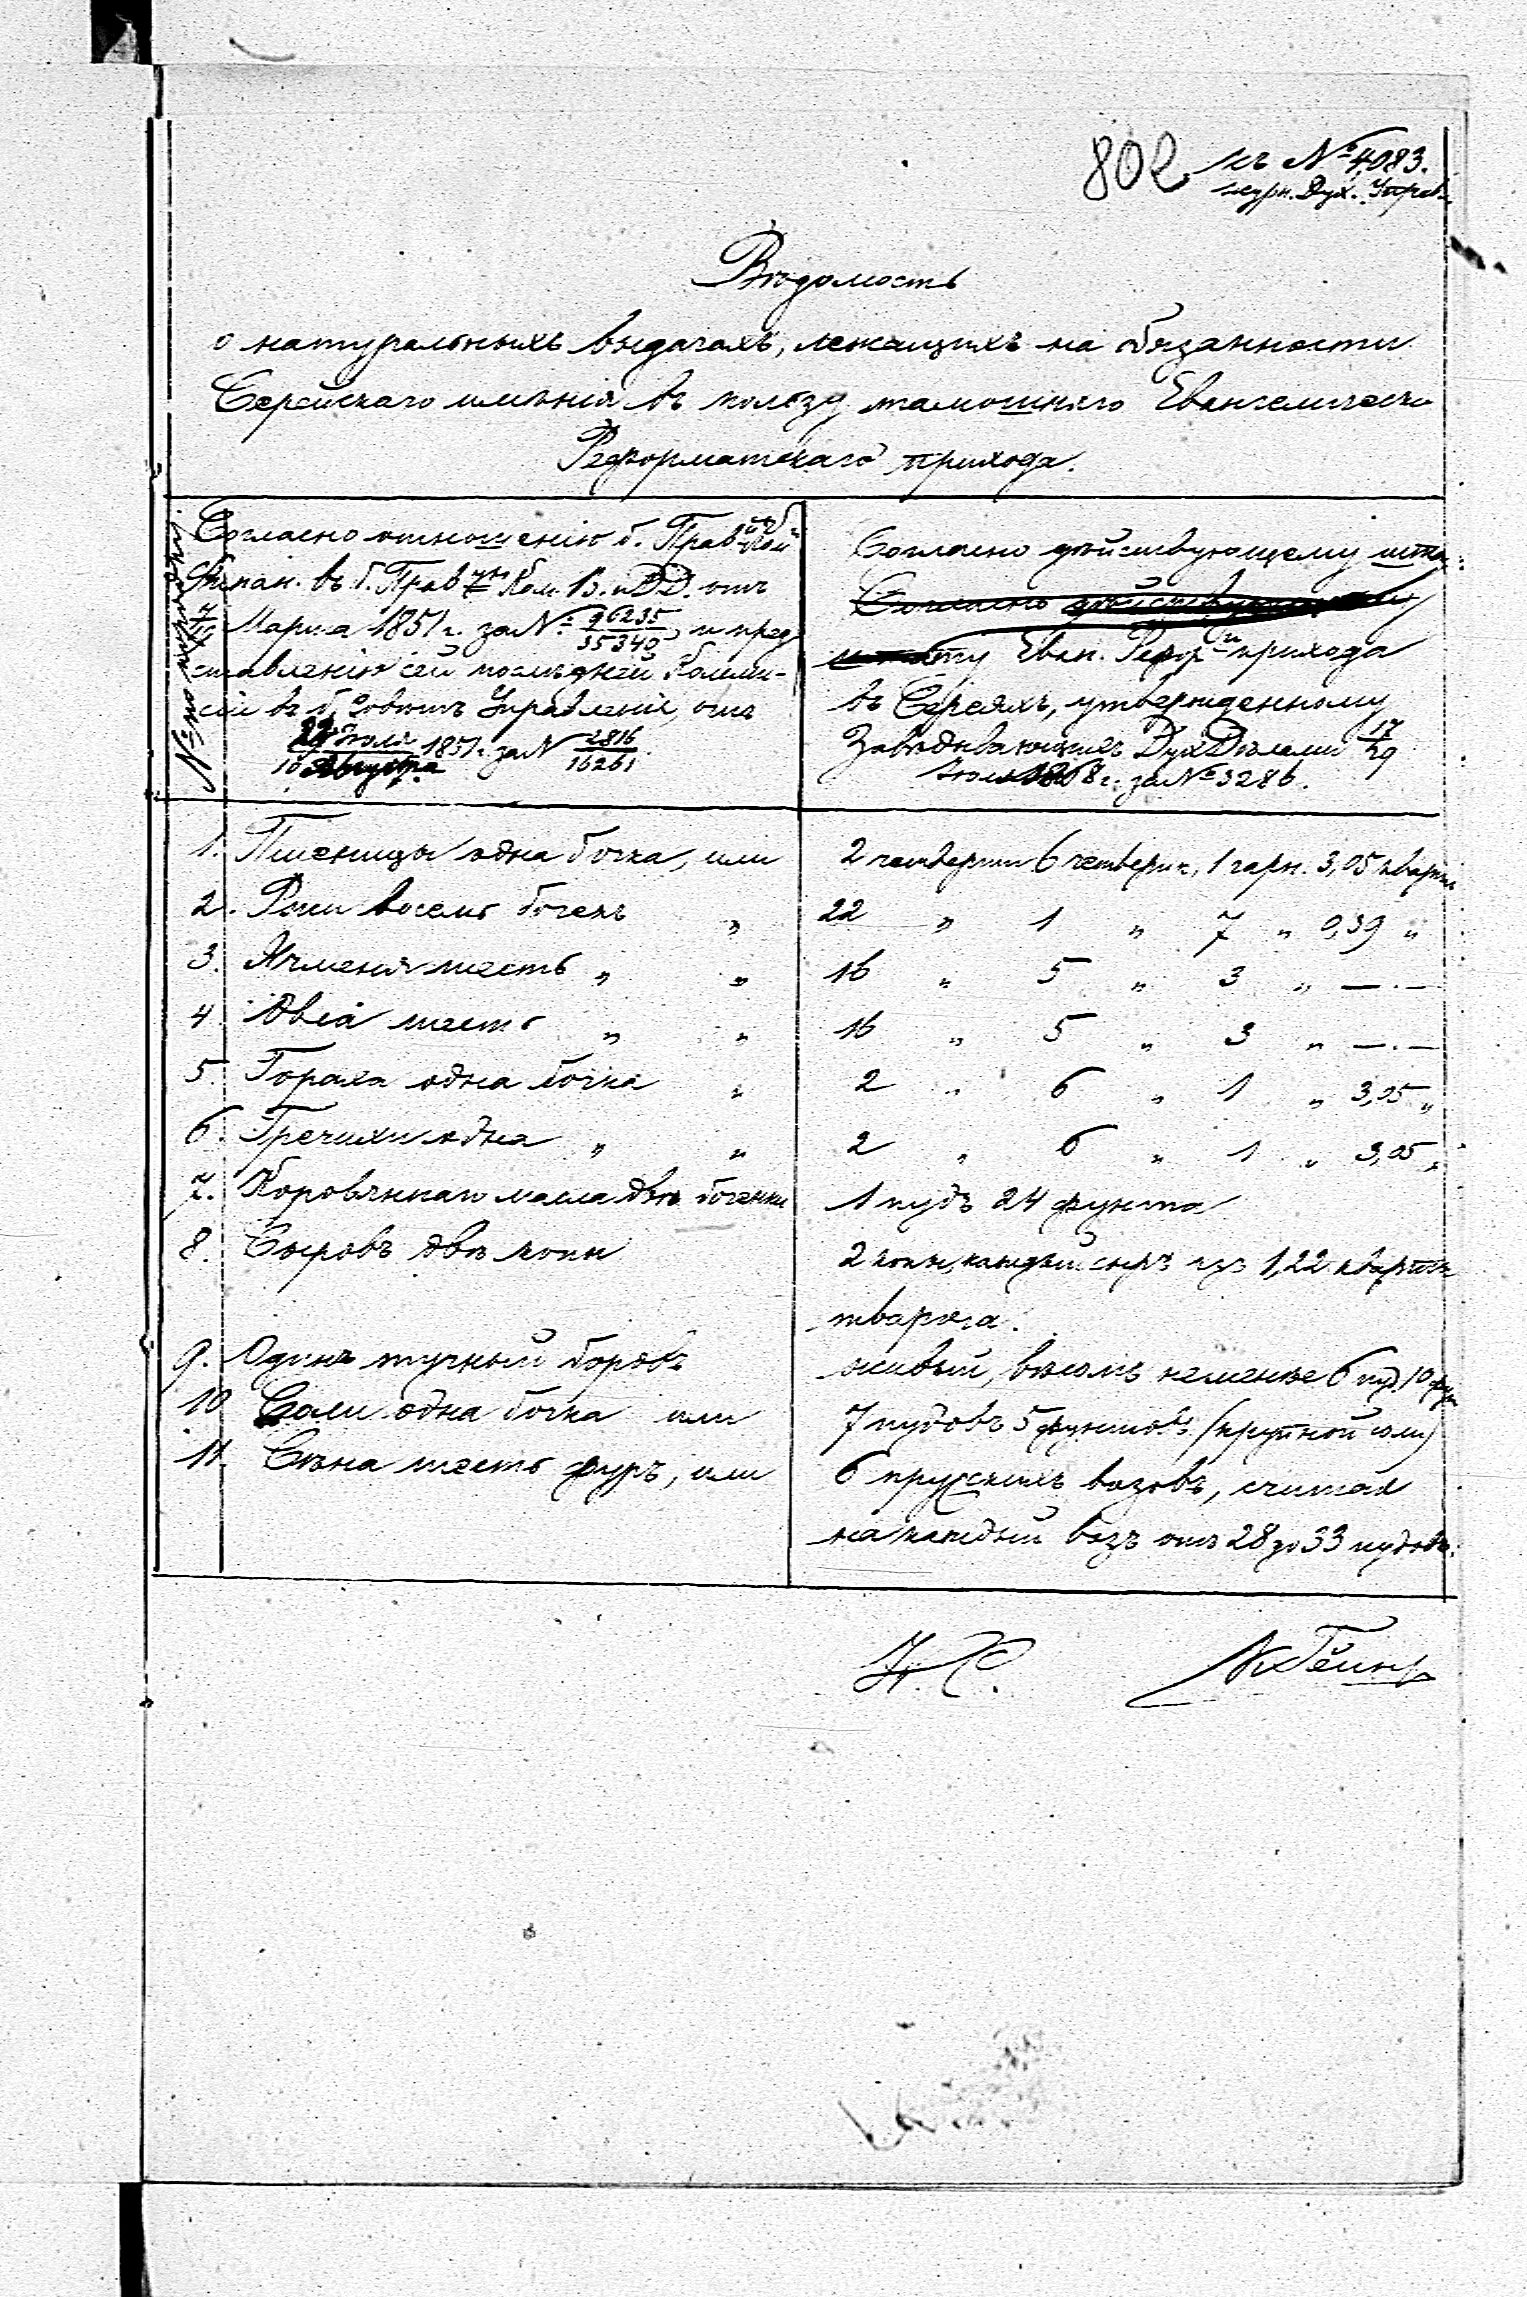 802. къ № 4,083.
журн. Дух. Управ.
Вѣдомость
о натуральныхъ выдачахъ, лежащихъ на обязанности
Серейскаго имѣнія въ пользу тамошняго Евангелическо
Реформатскаго прихода.
№ по порядку.
Согласно отношенію б. Прав. Ком.
Финан. въ б. Прав. Ком. В. и ДД. отъ
Марта 1851 г. за № 96235/35340, и пред
ставленію сей послѣдней Комми-
сіи въ б. Совѣтъ Управленія, отъ
Іюля/10 Августа 1851 г. за № 2816/16261
Согласно дѣйствующему шта-
Согласно дѣйствующему
штату Еван. Реф. прихода
въ Сереяхъ, утвержденному
Завѣдывающимъ Дух. Дѣлами 17/29
Іюля 1868 г. за № 3286.
1. Пшеницы одна бочка, или 2 четверти 6 четверик. 1 гарн. 3,05 кварты
2. Ржи восемь бочекъ " 22 " 1 " 7 " 0,39 "
3. Ячменя шесть " " 16 " 5 " 3 " —.—
4. Овса шесть " " 16 " 5 " 3 " —.—
5. Гороха одна бочка " 2 " 6 " 1 " 3,05 "
6. Гречихи одна " " 2 " 6 " 1 " 3,05 "
7. Коровьяго масла двѣ боченки 1 пудъ 24 фунта
8. Сыровъ двѣ копы 2 копы, каждый сыръ изъ 1,22 кварты
творога.
9. Одинъ тучный боровъ живый, вѣсомъ неменѣе 6 пуд. 10 фун
10 Соли одна бочка или 7 пудовъ 5 фунтовъ (крупной соли)
11. Сѣна шесть фуръ, или 6 прусскихъ возовъ, считая
на каждый возъ отъ 28 до 33 пудовъ.